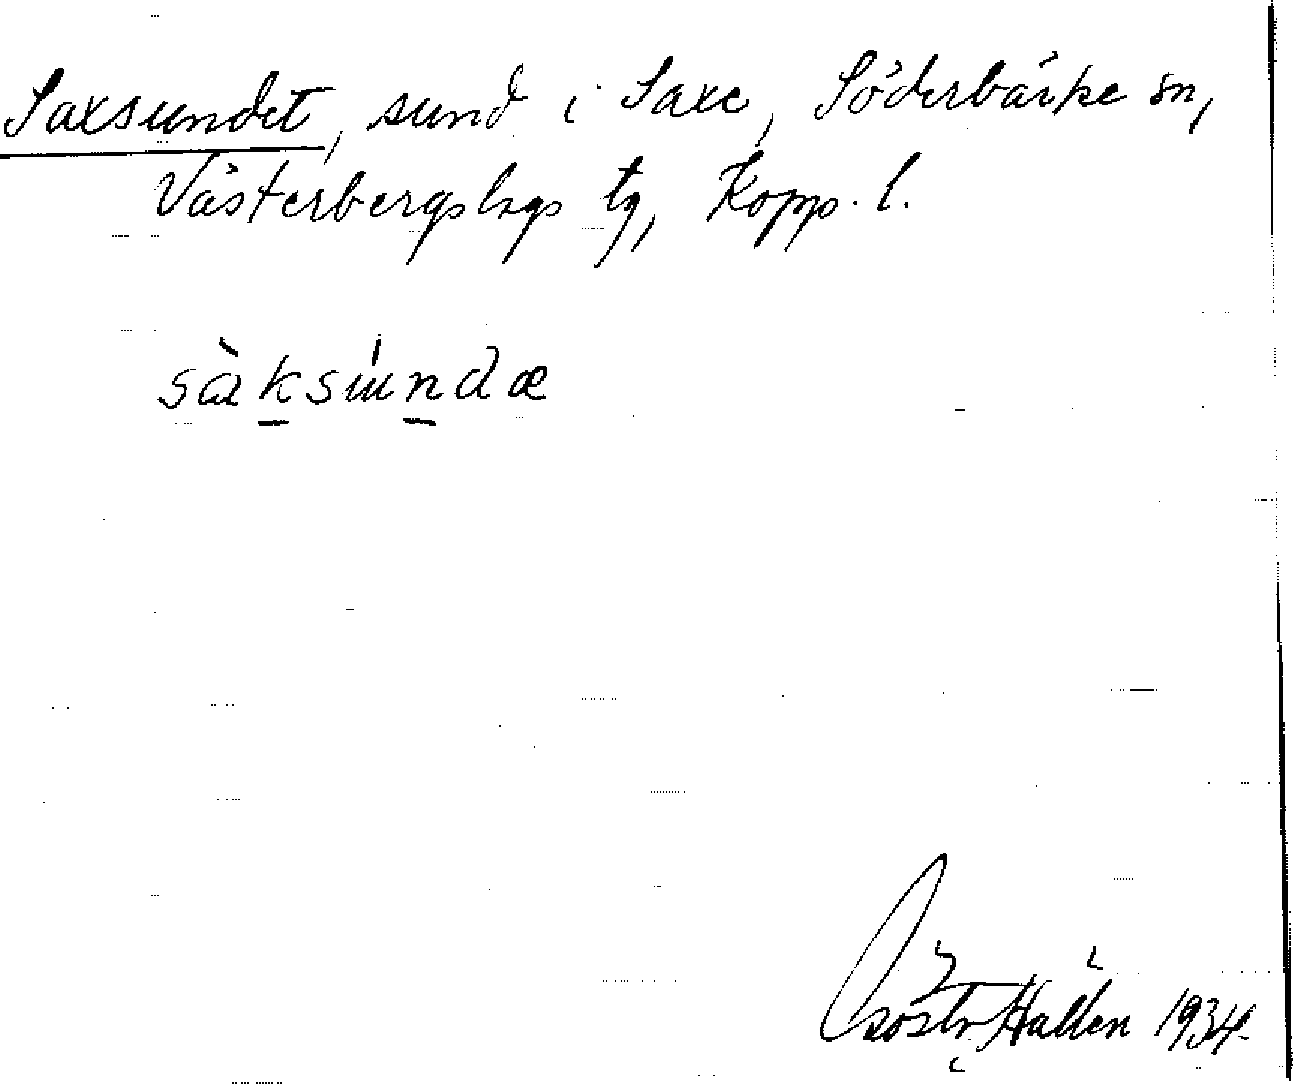 Saxsundet, sund i Saxe, Söderbärke sn,
Västerbergslags tg, Kopp. l.
sàksúndæ
Hallén 1934